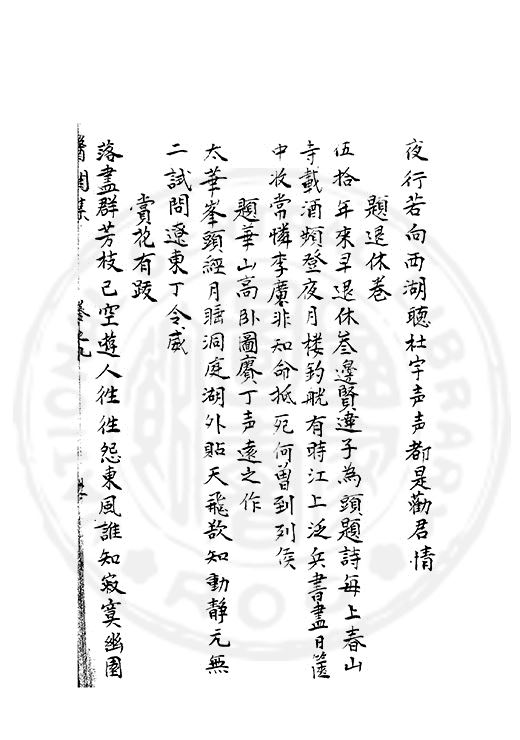 夜行若向西湖聽杜宇声声都是勸君情
題退休卷
伍拾年來早退休叁邊賢達子為頭題詩每上春山
寺載酒頻登夜月楼釣觥有時江上泛兵書盡日篋
中收常憐李廣非知命抵死何曾到列侯
題華山高卧圖賡丁声遠之作
太華峯頭經月睡洞庭湖外貼天飛欲知動静元無
二試問遼東丁令威
賞花有跋
落盡群芳枝已空遊人徃徃怨東風誰知寂寞幽園
醫閭集
卷之九